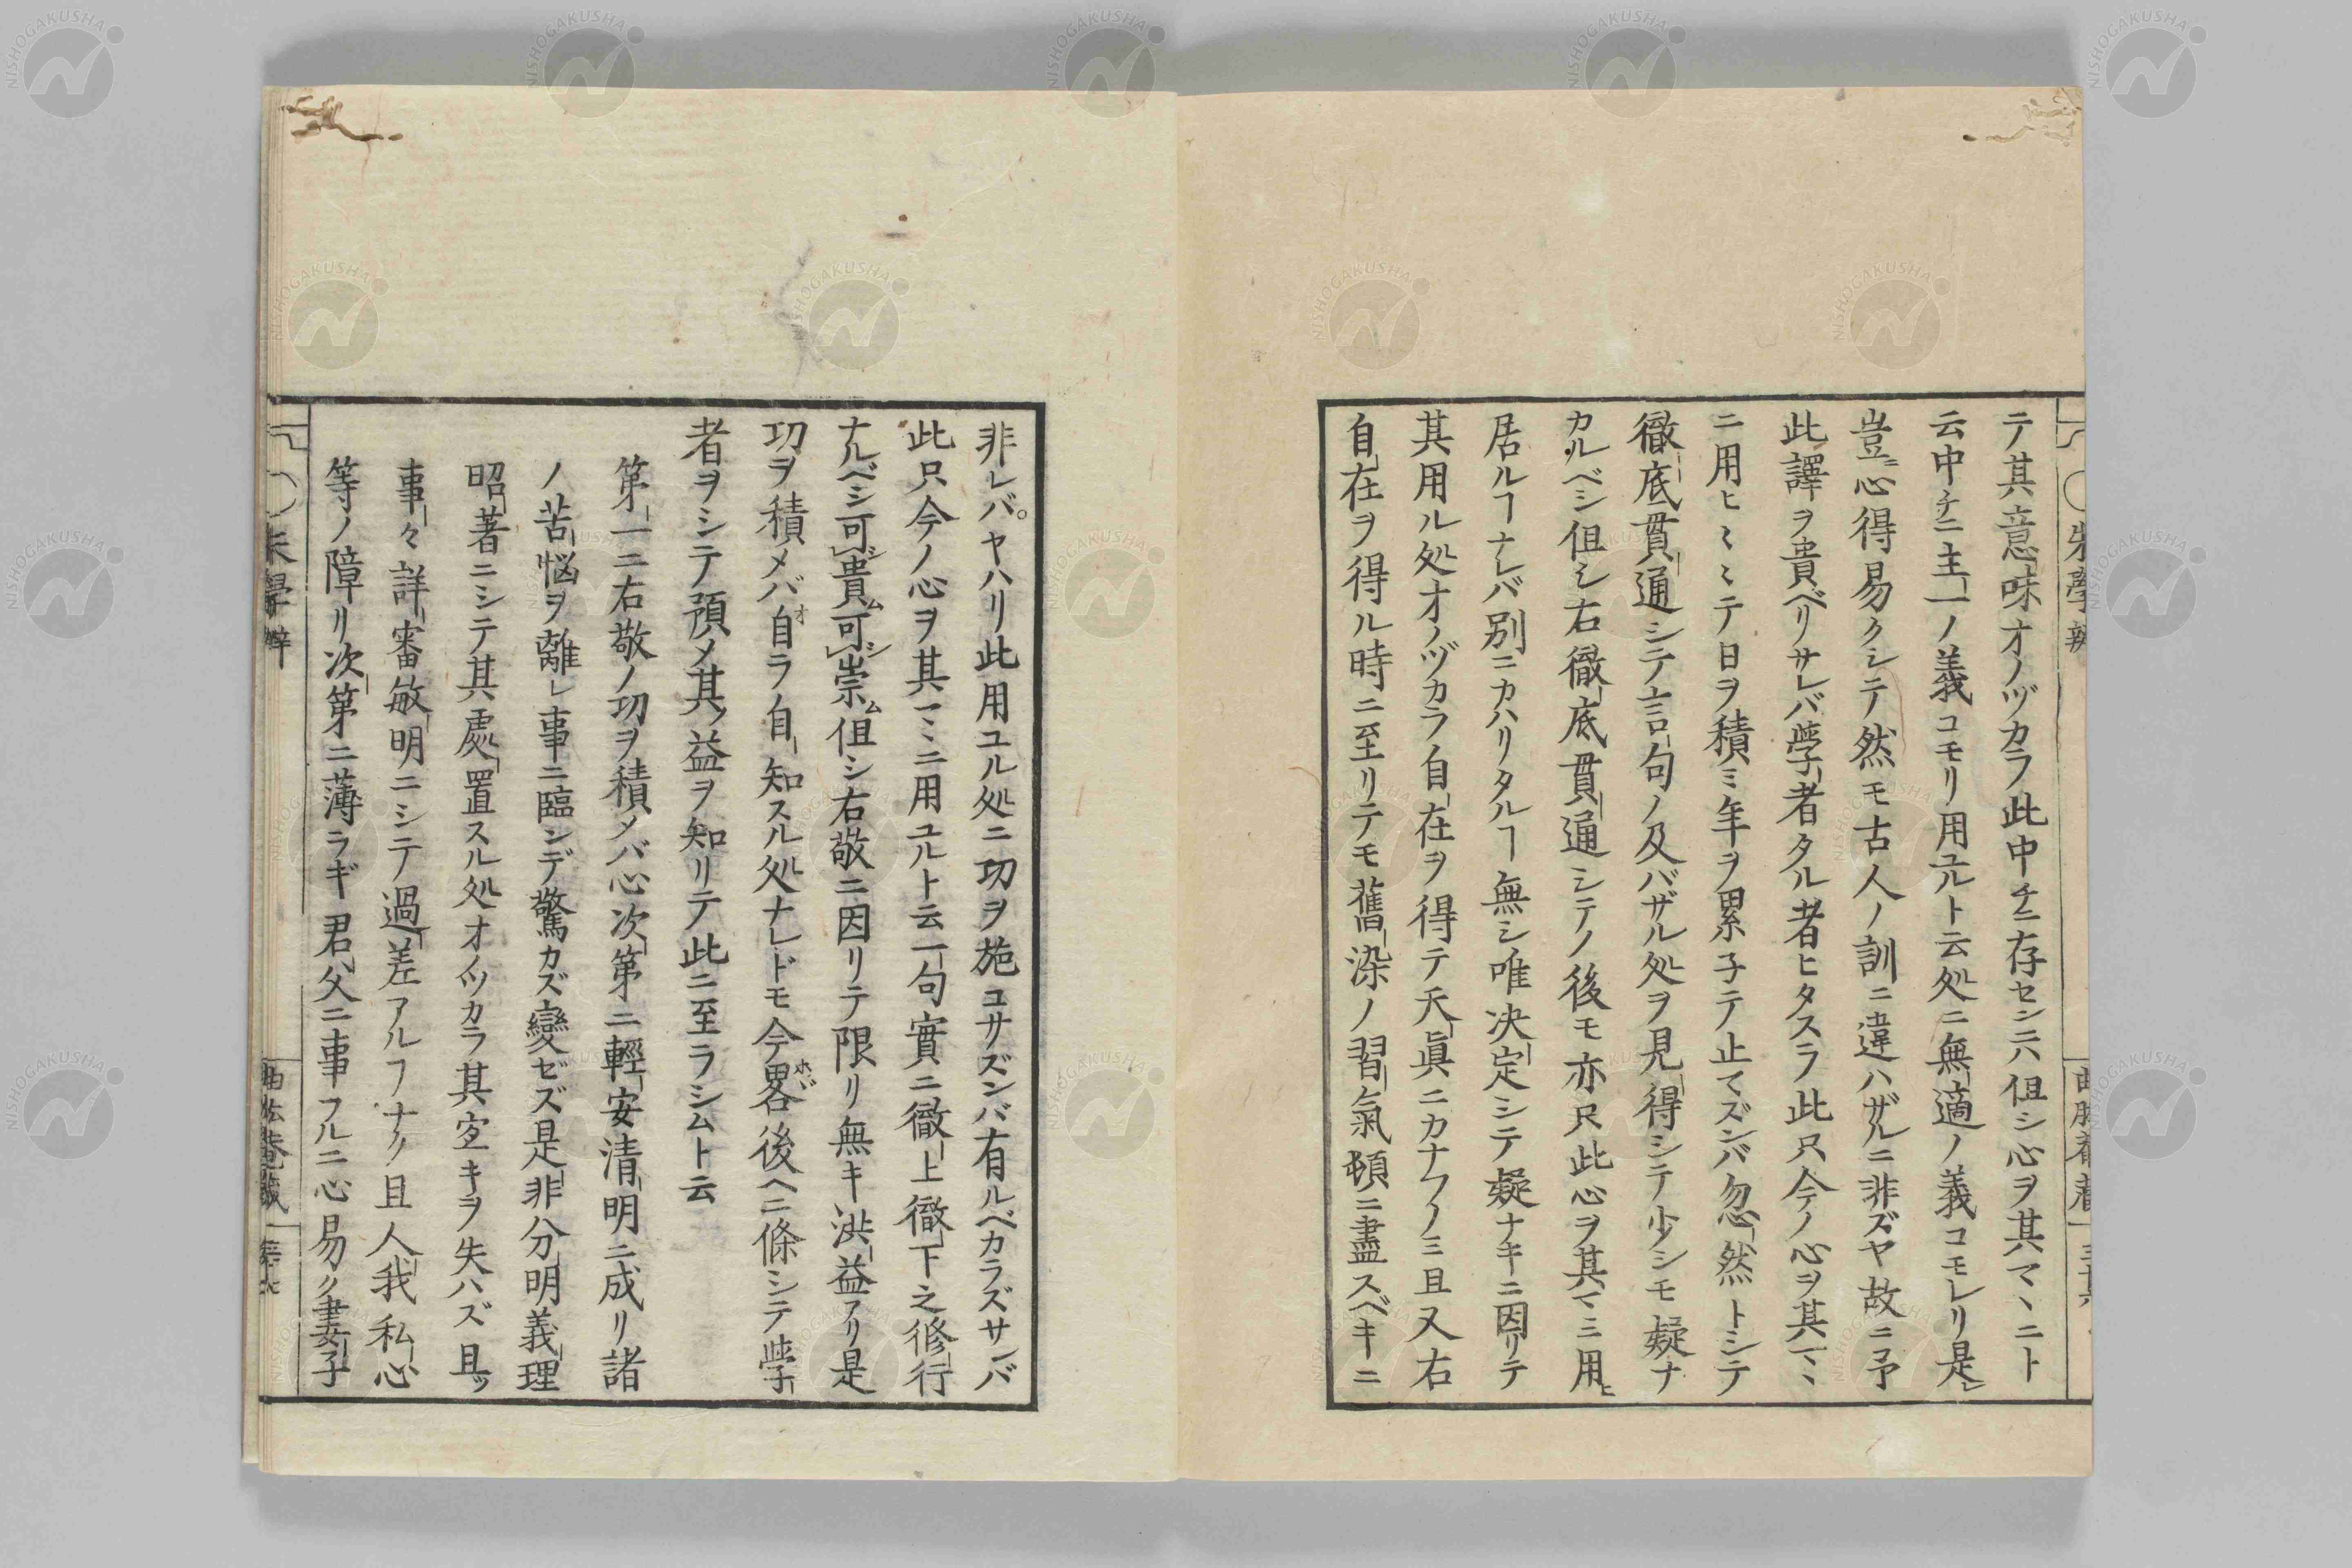 テ其意味オノヅカラ此中チニ存セシ六但シ心ヲ其マヽニト
云中チニ主一ノ義コモリ用ユルト云処ニ無適ノ義コモレリ是レ
豈ニ心得易クシテ然モ古人ノ訓ニ違ハザルニ非ズヤ故ニ予
此譯ヲ貴ベリサレバ學者タル者ヒタスラ此只今ノ心ヲ其マヽ
ニ用ヒ〻〻テ日ヲ積ミ年ヲ累子テ止マズンバ忽然トシテ
徹底貫通シテ言句ノ及バザル処ヲ見得シテ少シモ疑ナ
カルベシ但シ右徹底貫通シテノ後モ亦只此心ヲ其マヽニ用ヒ
居ルヿナレバ別ニカハリタルヿ無シ唯决定シテ疑ナキニ因リテ
其用ル処オノヅカラ自在ヲ得テ天眞ニカナフノミ且又右
自在ヲ得ル時ニ至リテモ舊染ノ習氣頓ニ盡スベキニ
非レバヤハリ此用ユル処ニ功ヲ施コサズンバ有ルベカラズサレバ
此只今ノ心ヲ其マヽニ用ユルト云一句實ニ徹上徹下之修行
ナルベシ可貴ブム可シ崇ム但シ右敬ニ因リテ限リ無キ洪益アリ是
功ヲ積メバ自オラ自知スル処ナレドモ今畧ホヾ後ヘニ條シテ學
者ヲシテ預メ其ノ益ヲ知リテ此ニ至ラシムト云
第一ニ右敬ノ功ヲ積メバ心次第ニ輕安清明ニ成リ諸
ノ苦悩ヲ離レ事ニ臨ンデ驚カズ變ゼズ是非分明義理
昭著ニシテ其處置スル処オノツカラ其宜キヲ失ハズ且ツ
事々詳審敏明ニシテ過差アルヿナク且人我私心
等ノ障リ次第ニ薄ラギ君父ニ事フルニ心易ク妻子
朱學辨